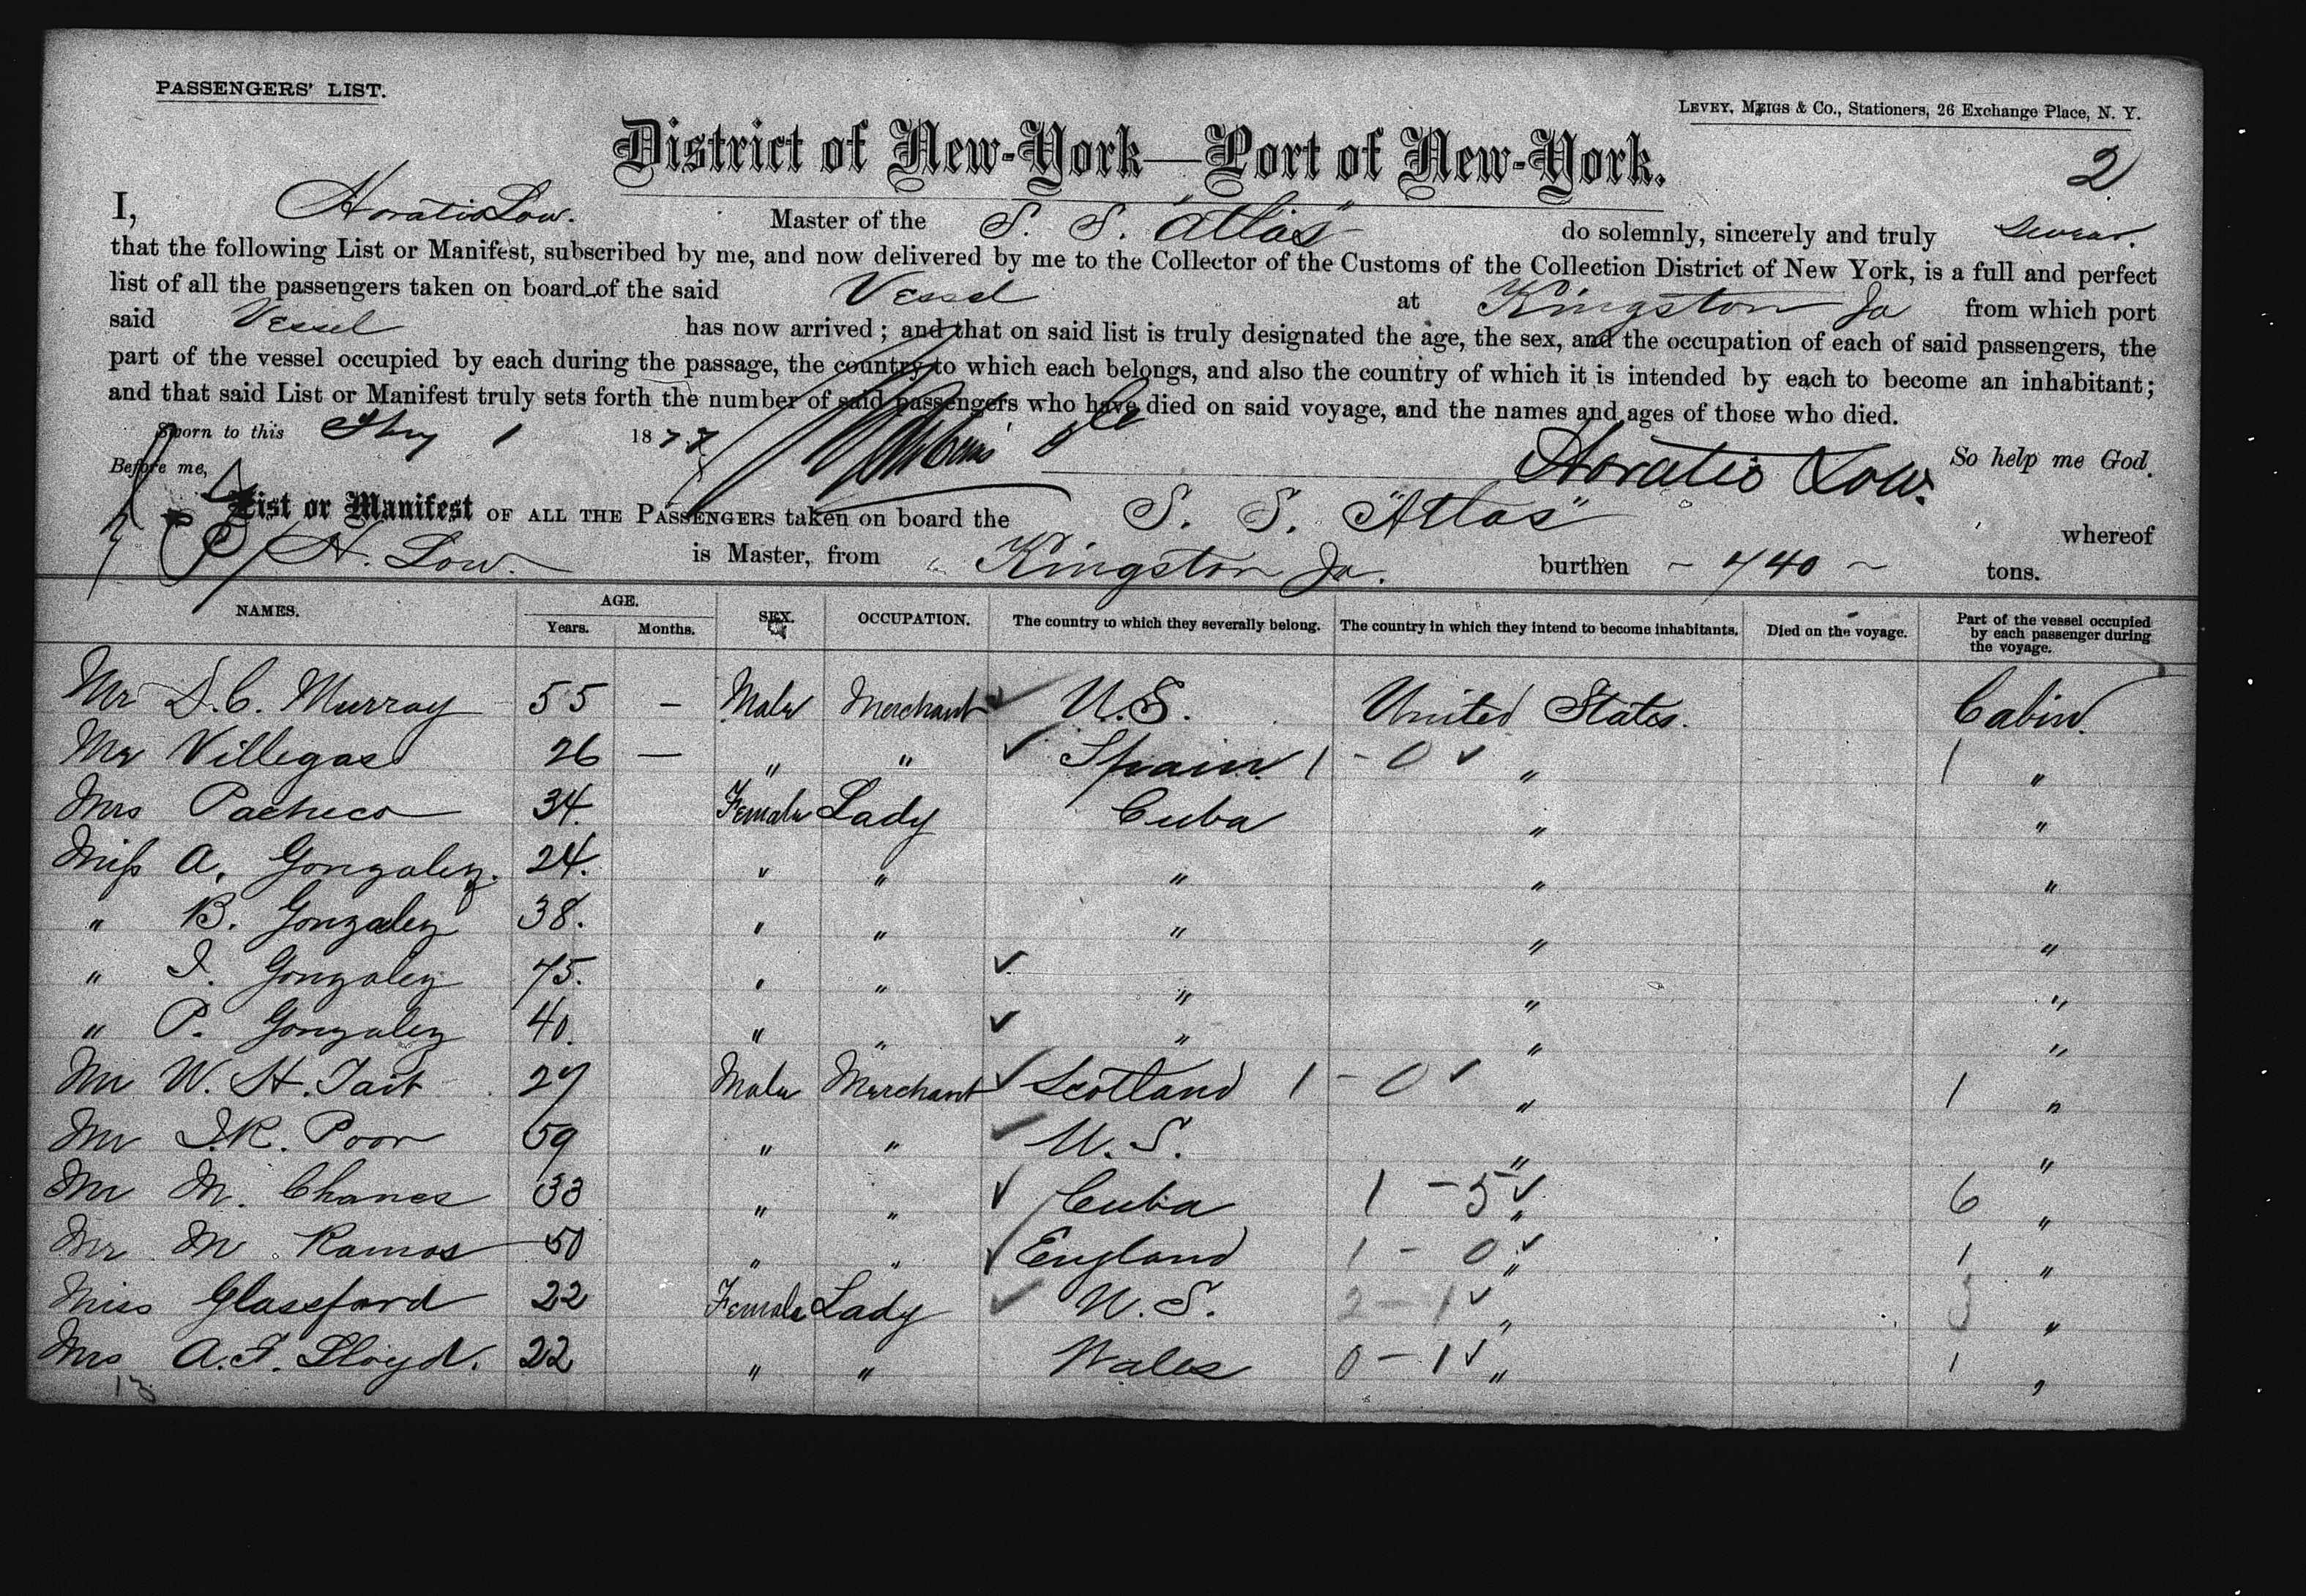 PASSENGERS' LIST.
LEVEY, MEIGS & Co., Stationers, 26 Exchange Place, N. Y.
District of New-York—Port of New-York.
2
I, Horatio Low. Master of the S. S. "Atlas" do solemnly, sincerely and truly swear.
that the following List or Manifest, subscribed by me, and now delivered by me to the Collector of the Customs of the Collection District of New York, is a full and perfect
list of all the passengers taken on board of the said Vessel at Kingston Ja from which port
said Vessel has now arrived; and that on said list is truly designated the age, the sex, and the occupation of each of said passengers, the
part of the vessel occupied by each during the passage, the country to which each belongs, and also the country of which it is intended by each to become an inhabitant;
and that said List or Manifest truly sets forth the number of said passengers who have died on said voyage, and the names and ages of those who died.
Sworn to this 1 1877 So help me God.
Before me, Horatio Low.
List or Manifest OF ALL THE PASSENGERS taken on board the S. S. "Atlas" whereof
H. Low. is Master, from Kingston Ja. burthen - 740 - tons.
NAMES. AGE. Years. Months. SEX. OCCUPATION. The country to which they severally belong. The country in which they intend to become inhabitants. Died on the voyage. Part of the vessel occupied by each passenger during the voyage.
Mr D. C. Murray 55 — Male Merchant ✓ U.S. United States. Cabin.
Mr Villegas 26 — " " ✓ Spain 1 - 0 ✓ " 1 "
Mrs Pacheco 34. Female Lady Cuba " "
Miss A. Gonzalez. 24. " " " " "
" B. Gonzalez 38. " " " " "
" I. Gonzalez 75. " " ✓ " " "
" P. Gonzalez 40. " " ✓ " " "
Mr W. H. Tait 27 Male Merchant ✓ Scotland 1 - 0 ✓ " 1 "
Mr I. R. Poor 59 " " ✓ U. S. " "
Mr M. Chanes 33 " " ✓ Cuba 1 - 5 ✓ " 6 "
Mr M Ramos 50 " " ✓ England 1 - 0 ✓ " 1 "
Miss Glassford 22 Female Lady ✓ U. S. 2 - 1 ✓ " 3 "
Mrs A. F. Lloyd. 22 " " Wales 0 - 1 ✓ " 1 "
13